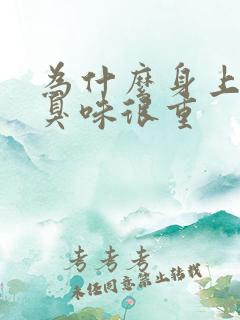 为什麽身上
臭味很重
考考考
未经同意禁止转载